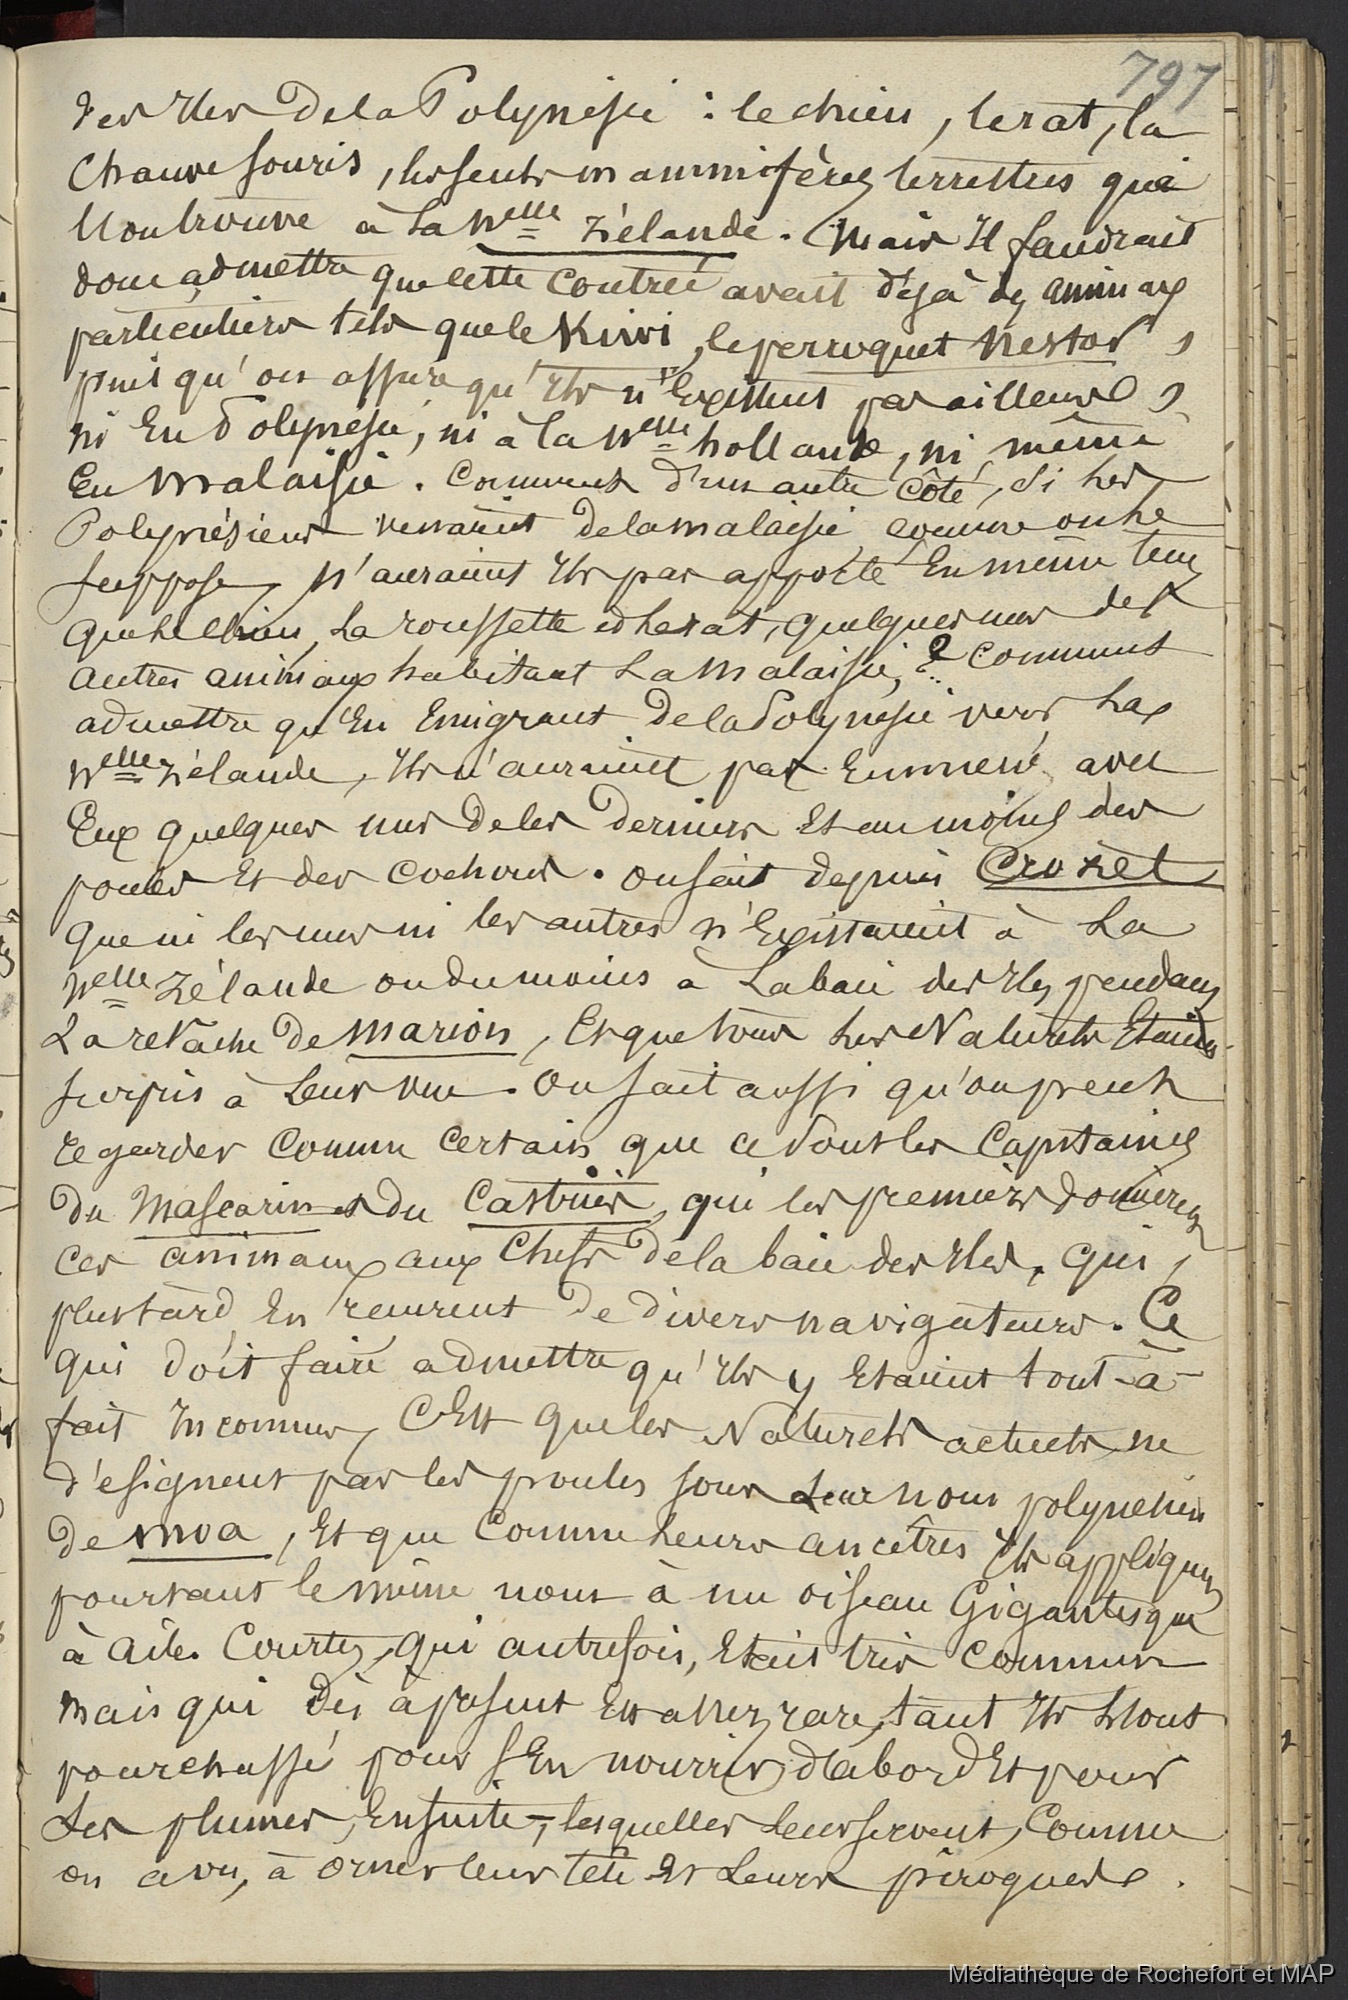 797
des Iles de la Polynésie : le chien, le rat, la
chauve souris, les seuls mammifères terrestres que
l'on trouve à la Nelle Zélande. Mais Il faudrait
donc admettre que cette contrée avait déjà des animaux
particuliers tels que le Kiwi, le perroquet Nestor,
puis qu'on assure qu'Ils n'Existent pas ailleurs,
ni En Polynésie, ni à la Nelle hollande, ni même
En Malaisie. Comment d'un autre côté, si les
Polynésiens venaient de la malaisie comme on le
suppose, N'auraient Ils pas apporté En même tems
que le chien, la roussette et le rat, quelques uns des
autres animaux habitant la Malaisie, ? comment
admettre qu'En Emigrant de la Polynésie vers la
Nelle Zélande, Ils n'auraient pas Emmené avec
Eux quelques uns de ces derniers Et au moins des
poules Et des cochons. on sait depuis Crozet
que ni les uns ni les autres n'Existaient à la
Nelle Zélande ou du moins à la baie des Iles pendant
la relâche de Marion, Et que tous les Naturels Etaient
surpris à leur vue. On sait aussi qu'on peut
regarder comme certain que ce sont les Capitaines
du Mascarin et du Castries, qui les premiers donnèrent
ces animaux aux Chefs de la baie des Iles, qui,
plus tard En reçurent de divers navigateurs. Ce
qui doit faire admettre qu'Ils y Etaient tout-à-
fait Inconnus, C'Est que les Naturels actuels ne
désignent pas les poules sous leur nom polynésien
de moa, Et que comme leurs ancêtres Ils appliquent
pourtant le même nom à un oiseau Gigantesque
à ailes courtes, qui autrefois, Etait très commun
mais qui dès à présent Est assez rare, tant Ils l'ont
pourchassé pour s'En nourrir d'abord Et pour
les plumes, Ensuite, lesquelles leur servent, comme
on a vu, à orner leur tête Et leurs pirogues.
Médiathèque de Rochefort et MAP